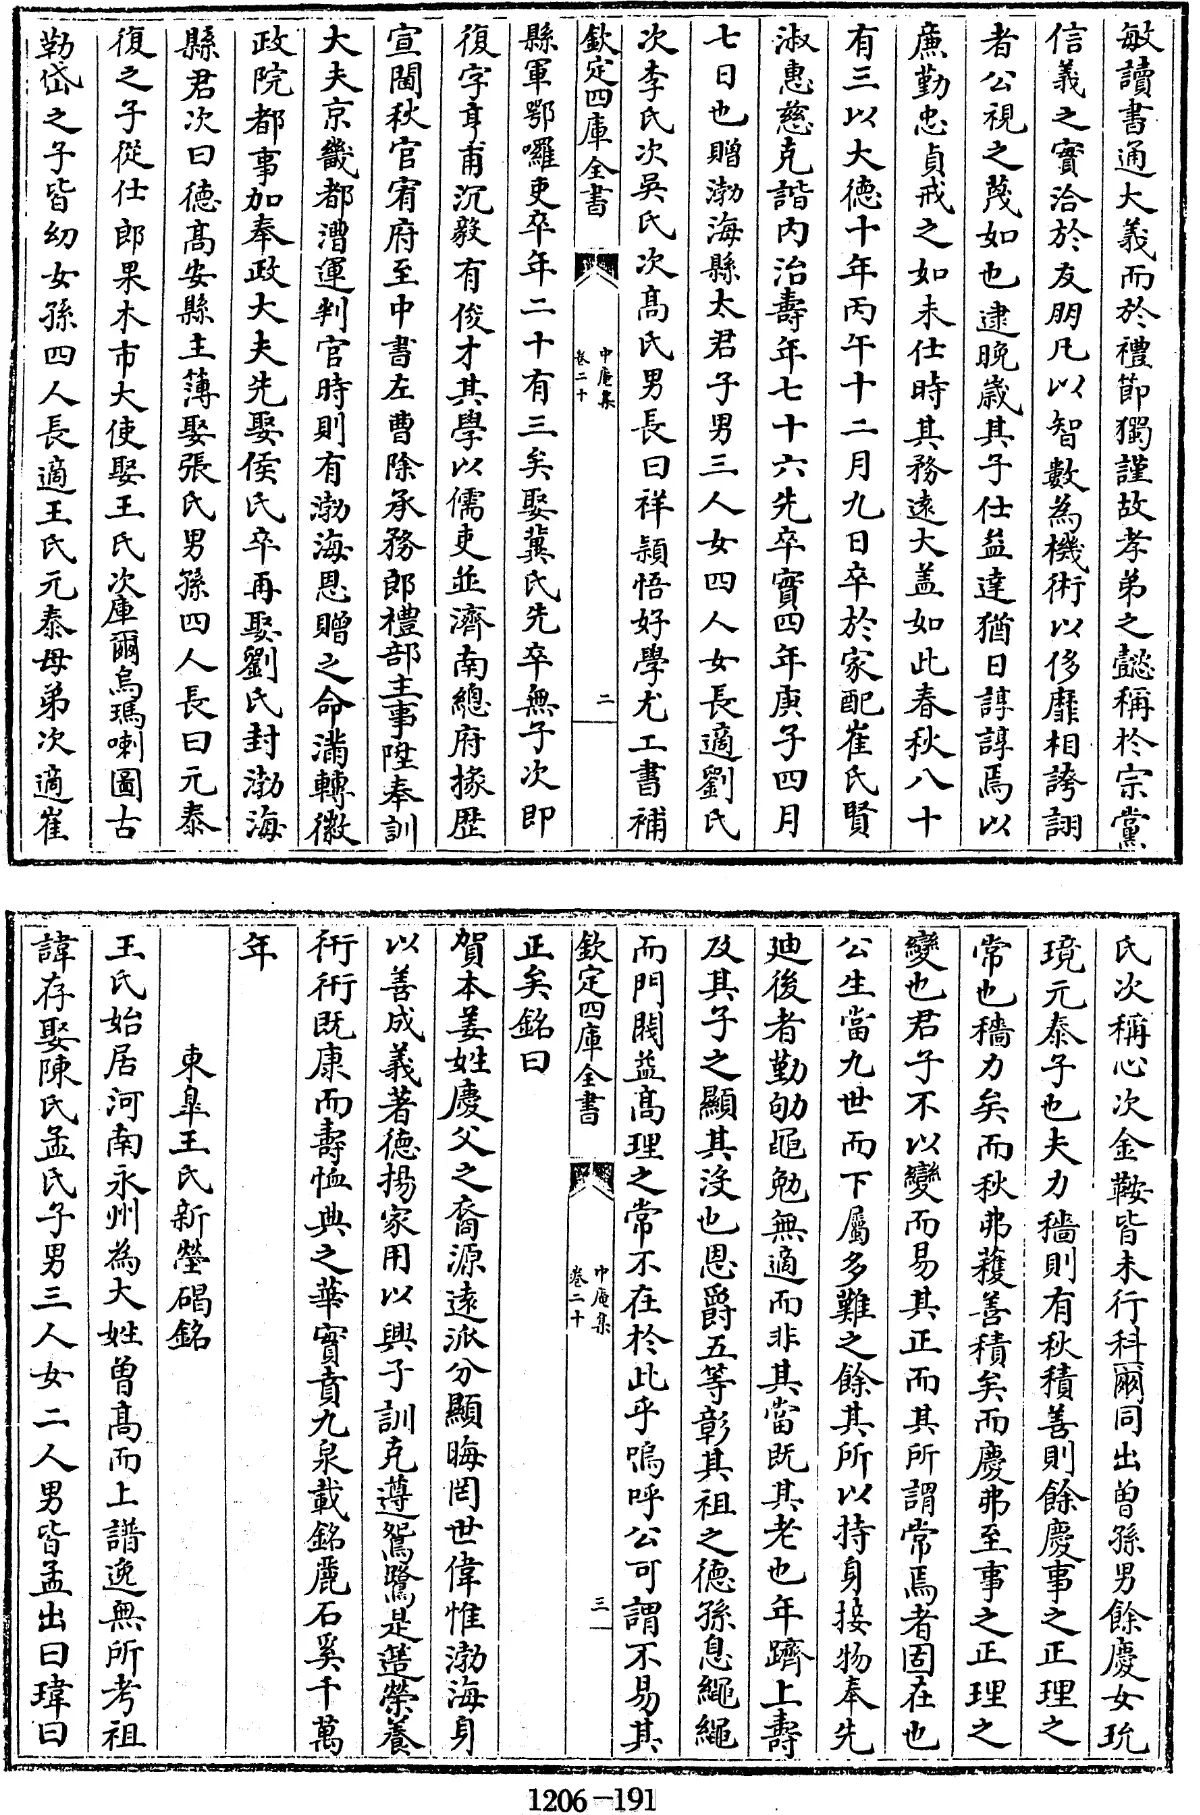 敏讀書通大義而於禮節獨謹故孝弟之懿稱於宗黨
信義之實洽於友朋凡以智數為機術以侈靡相誇詡
者公視之蔑如也逮晚歲其子仕益達猶日諄諄焉以
廉勤忠貞戒之如未仕時其務遠大盖如此春秋八十
有三以大德十年丙午十二月九日卒於家配崔氏賢
淑惠慈克諧内治壽年七十六先卒實四年庚子四月
七日也贈渤海縣太君子男三人女四人女長適劉氏
次李氏次吳氏次高氏男長曰祥頴悟好學尤工書補
欽定四庫全書
中庵集
卷二十
二
縣軍鄂囉吏卒年二十有三矣娶冀氏先卒無子次即
復字亨甫沉毅有俊才其學以儒吏並濟南總府掾歴
宣閫秋官宥府至中書左曹除承務郎禮部主事陞奉訓
大夫京畿都漕運判官時則有渤海恩贈之命滿轉徽
政院都事加奉政大夫先娶侯氏卒再娶劉氏封渤海
縣君次曰德高安縣主簿娶張氏男孫四人長曰元泰
復之子從仕郎果木市大使娶王氏次庫爾烏瑪喇圖古
勒岱之子皆幼女孫四人長適王氏元泰母弟次適崔
氏次稱心次金鞍皆未行科爾同出曽孫男餘慶女玧
璄元泰子也夫力穡則有秋積善則餘慶事之正理之
常也穡力矣而秋弗穫善積矣而慶弗至事之正理之
變也君子不以變而易其正而其所謂常焉者固在也
公生當九世而下屬多難之餘其所以持身接物奉先
廸後者勤劬黽勉無適而非其當既其老也年躋上壽
及其子之顯其沒也恩爵五等彰其祖之德孫息繩繩
而門閥益高理之常不在於此乎嗚呼公可謂不易其
欽定四庫全書
中庵集
卷二十
三
正矣銘曰
賀本姜姓慶父之裔源遠派分顯晦罔世偉惟渤海身
以善成義著德揚家用以興子訓克遵鴛鷺是簉榮養
衎衎既康而壽恤典之華實賁九泉載銘麗石奚千萬
年
東臯王氏新塋碣銘
王氏始居河南永州為大姓曽高而上譜逸無所考祖
諱存娶陳氏孟氏子男三人女二人男皆孟出曰瑋曰
1206-191